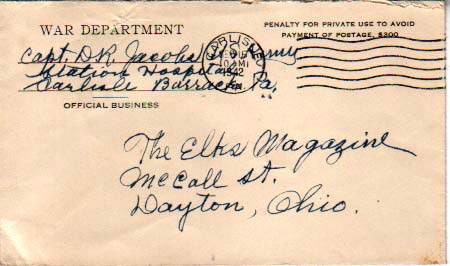 WAR DEPARTMENT
PENALTY FOR PRIVATE USE TO AVOID
PAYMENT OF POSTAGE, $300
Capt. D.R. Jacobs U.S. Army
Station Hospital
Carlisle Barracks Pa.
OFFICIAL BUSINESS
CARLISLE
10 AM
1942
The Elks Magazine
McCall St.
Dayton, Ohio.